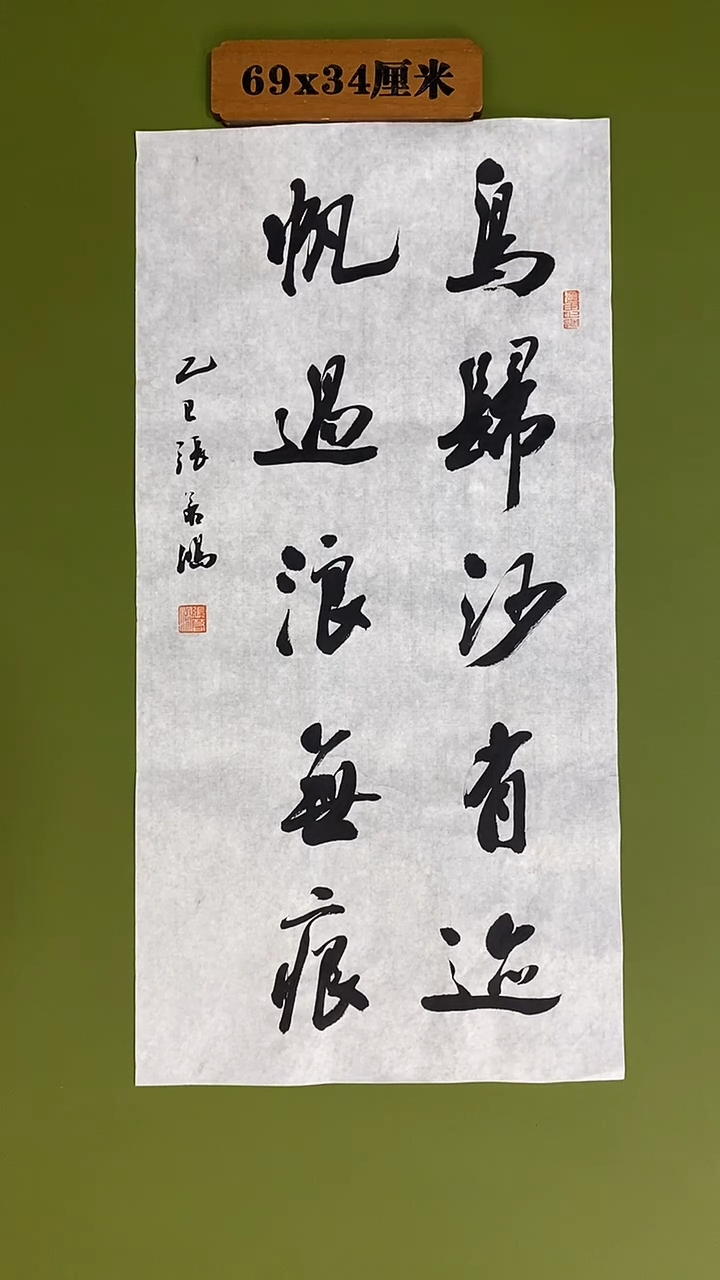 69x34厘米
鳥歸沙有迹
帆過浪無痕
乙巳張若鴻